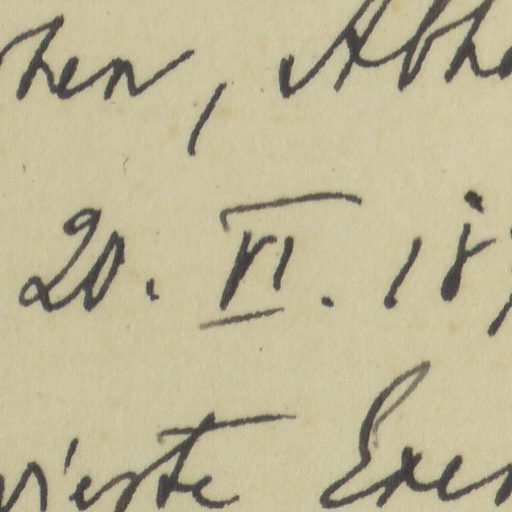 hen, Abh
20. VI. 18
vierte Exem